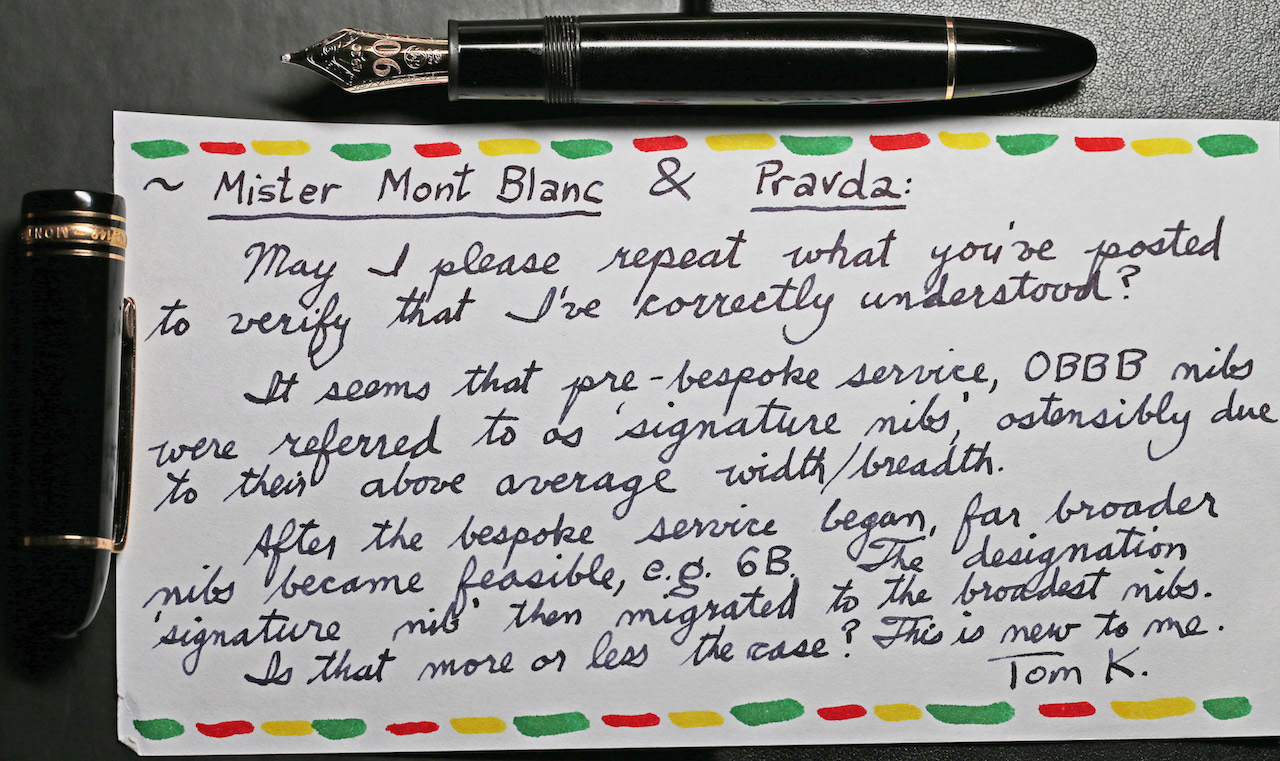 90
~ Mister Mont Blanc & Pravda:
May I please repeat what you've posted
to verify that I've correctly understood?
It seems that pre-bespoke service, OBBB nibs
were referred to as 'signature nibs', ostensibly due
to their above average width/breadth.
After the bespoke service began, far broader
nibs became feasible, e.g. 6B. The designation
'signature nib' then migrated to the broadest nibs.
Is that more or less the case? This is new to me.
Tom K.